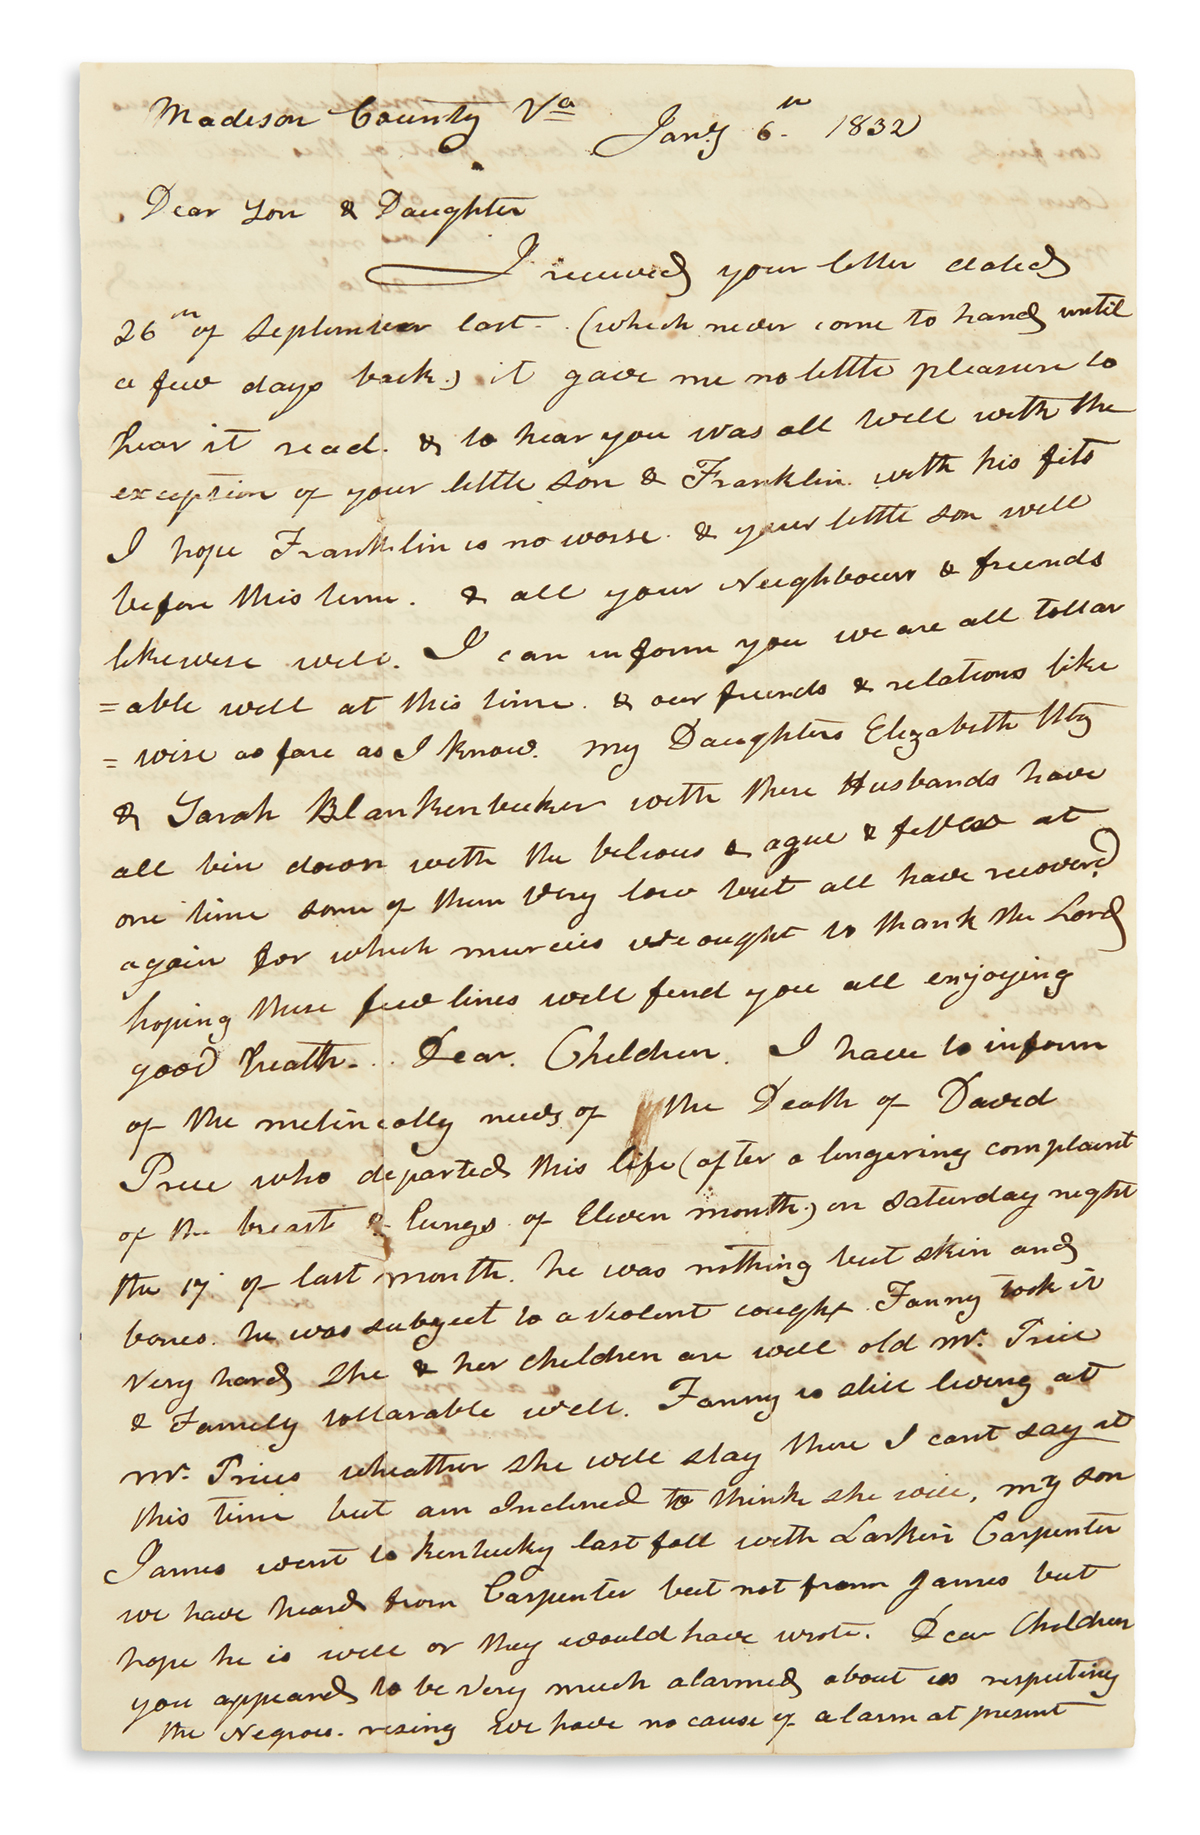 Madison County Va Jany 6th 1832
Dear Son & Daughter
I received your letter dated
26th of September last. (which never come to hand until
a few days back.) it gave me no little pleasure to
hear it read. & to hear you was all well with the
exception of your little son & Franklin. with his fits
I hope Franklin is no worse. & your little son well
before this time. & all your Neighbours & friends
likewise well. I can inform you we are all tollar
=able well at this time. & our friends & relations like
=wise as fare as I know. my Daughters Elizabeth Utz
& Sarah Blankenbeker with there Husbands have
all bin down with the bilious & ague & fever at
one time some of them very low but all have recoverd
again for which murcies we ought to thank the Lord
hoping these few lines will find you all enjoying
good health. Dear. Children. I have to inform
of the melincolly news of the Death of David
Price who departed this life (after a lingering complaint
of the breast & lungs of Eleven month.) on Saturday night
the 17. of last month. he was nothing but skin and
bones. he was subject to a violent cough. Fanny took it
very hard she & her children are well old Mr. Price
& Family tollarable well. Fanny is still living at
Mr. Prices wheather she will stay there I cant say at
this time but am Inclined to think she will, my son
James went to Kentucky last fall with Larkin Carpenter
we have heard from Carpenter but not from James but
hope he is well or they would have wrote. Dear Children
you appeared to be very much alarmed about us respecting
the Negroes. rising we have no cause of alarm at present